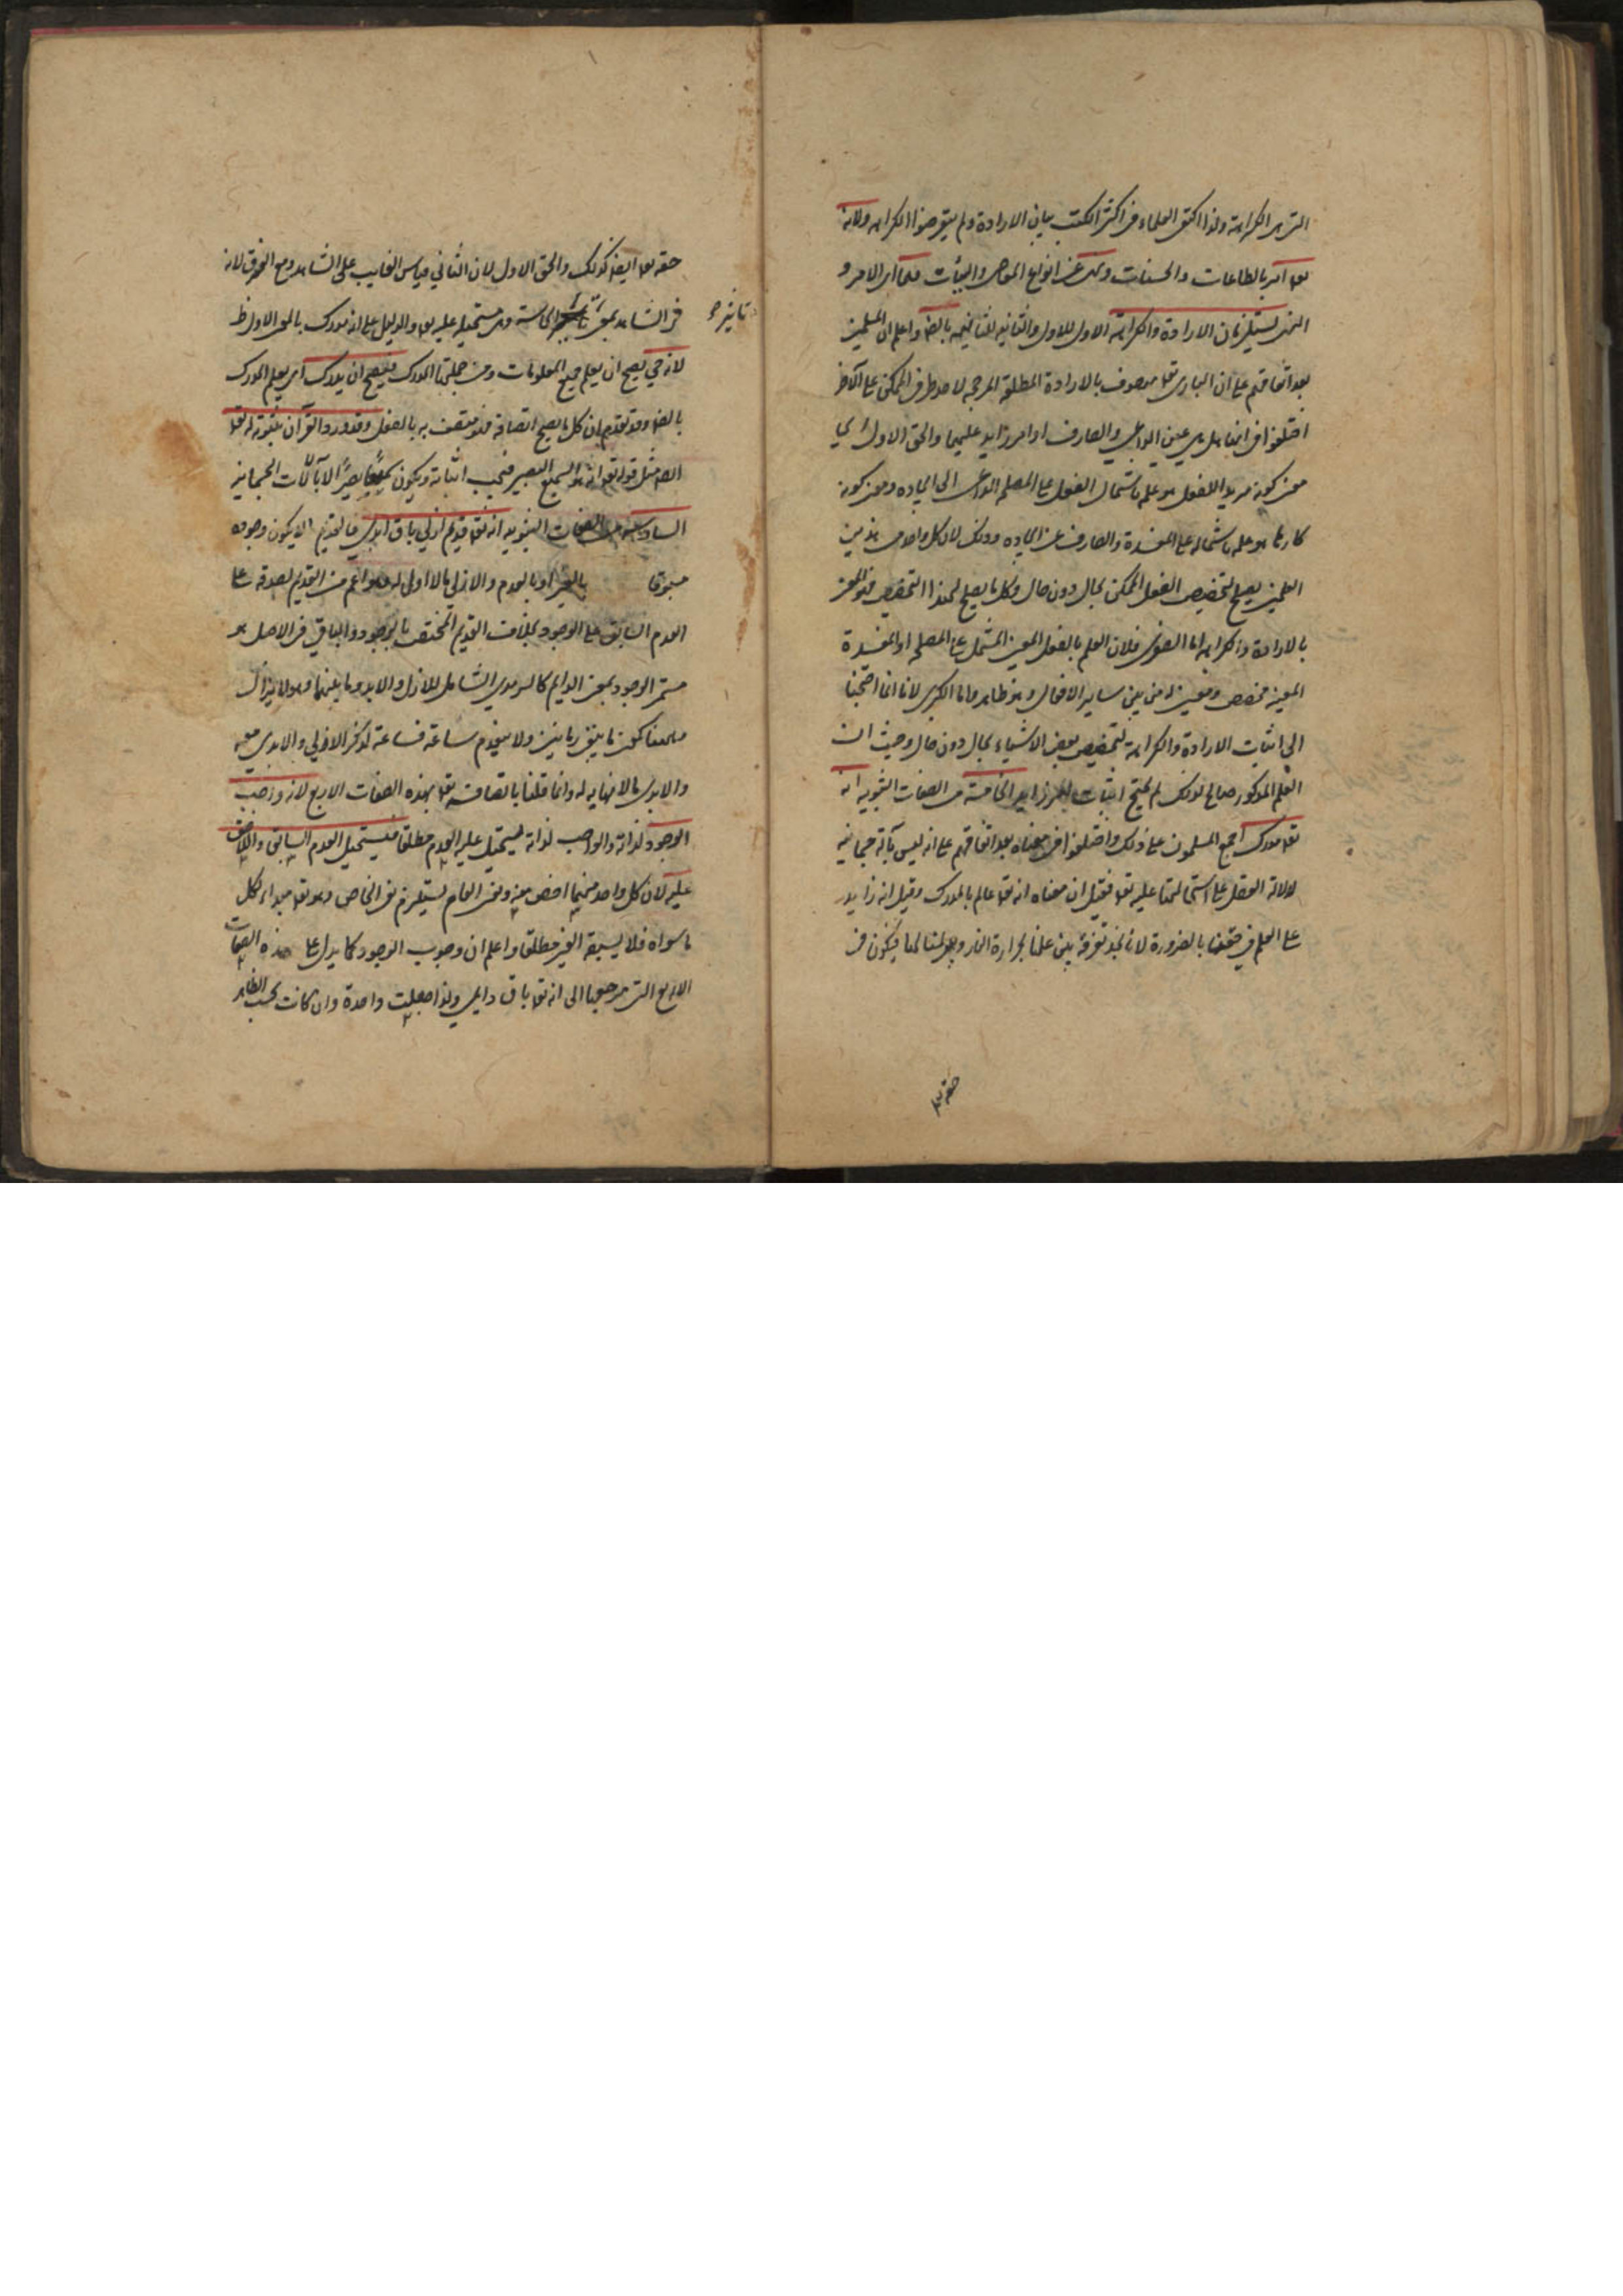 التي هي الكراهة ولذا اكتفى العلماء في اكثر الكتب ببيان الارادة ولم يتعرضوا الكراهه ولانه
تعه آمر بالطاعات والحسنات ونهى عن انواع المعاصي والسيئات فلهما اى الامر و
النهى يستلزمان الارادة والكراهة الاول للاول والثانيه للثانيه بالضر واعلم ان المسلمين
بعد اتفاقهم على ان البارى تعه موصوف بالارادة المطلقة المرجحه لاحد طرفى الممكن على الآخر
اختلفوا فى انها هل هى عين الداعى والصارف او امر زايد عليهما والحق الاول اى
معنى كونه مريد اللفعل هو علمه باشتمال الفعل على المصلحه الداعى الى ايجاده ومعنى كونه
كارها هو علمه باشتماله على المفسدة والصارف عن ايجاده وذلك لان كل واحد من هذين
العلمين يصلح لتخصيص الفعل الممكن بحال دون حال وكل ما يصلح لهذا التخصيص فهو المعنى
بالارادة والكراهه اما الصغرى فلان العلم بالفعل المعين المشتمل على المصلحه او المفسدة
المعينه مخصص ومعين له من بين ساير الافعال وهو ظاهر واما الكبرى لانا انما احتجنا
الى اثبات الارادة والكراهة لتخصيص بعض الاشياء بحال دون حال وحيث ان
العلم المذكور صالح لذلك لم يحتج اثبات امر زايد الخامسة من الصفات الثبوتيه انه
تعه مدرك اجمع المسلمون على ذلك واختلفوا فى معناه بعد اتفاقهم على انه ليس بآلة جسمانية
لدلالة العقل على استحالتها عليه تعه فقيل ان معناه انه تعه عالم بالمدرك وقيل انه زايد
على العلم فى حقنا بالضرورة لانا نجد تفرقة بين علمنا بحرارة النار وبين لمسنا لها فيكون فى
حقه تعه
حقه تعه ايضا كذلك والحق الاول لان الثاني قياس الغايب على الشاهد ومع الفرق لانه
فى الشاهد بمعنى تأثر الحاسة وهى مستحيل عليه تعه والدليل على انه مدرك بالمعنى الاول ظ
تاثير
لانه حي يصح ان يعلم جميع المعلومات ومن جملتها المدرك فيصح ان يدرك اى يعلم المدرك
بالضر وقد تقدم ان كل ما يصح اتصافه فهو متصف به بالفعل وقد ورد القرآن بثبوته له تعه
ايضا مثل قوله تعه انه هو السميع البصير فيجب اثباته ويكون سميعًا بصيرًا لا بآلات الجسمانية
السادسة من الصفات الثبوتيه انه تعه قديم ازلي باق ابدي فالقديم الا يكون وجوده
مسبوقا بالغير او بالعدم والازلي ما لا اول له وهو اعم من القديم لصدقه على
العدم السابق على الوجود بخلاف القديم المختص بالوجود والباقي فى الاصل هو
مستمر الوجود بمعنى الدايم كالسرمدي الشامل للازل والابد وما بينهما وهو لا يزال
والابدى ما لا نهاية له وانما قلنا باتصافه تعه بهذه الصفات الاربع لانه واجب
الوجود لذاته والواجب لذاته يستحيل عليه العدم مطلقا فيستحيل العدم السابق واللاحق
عليه لان كل واحد منهما اخص منه ونفى العام يستلزم نفى الخاص وهو تعه مبداء لكل
ما سواه فلا يسبقه الغير مطلقا واعلم ان وجوب الوجود كما يدل على هذه الصفات
الاربع التى مرجعها الى انه تعه باق دايمي ولذا جعلت واحدة وان كانت بحسب الظاهر